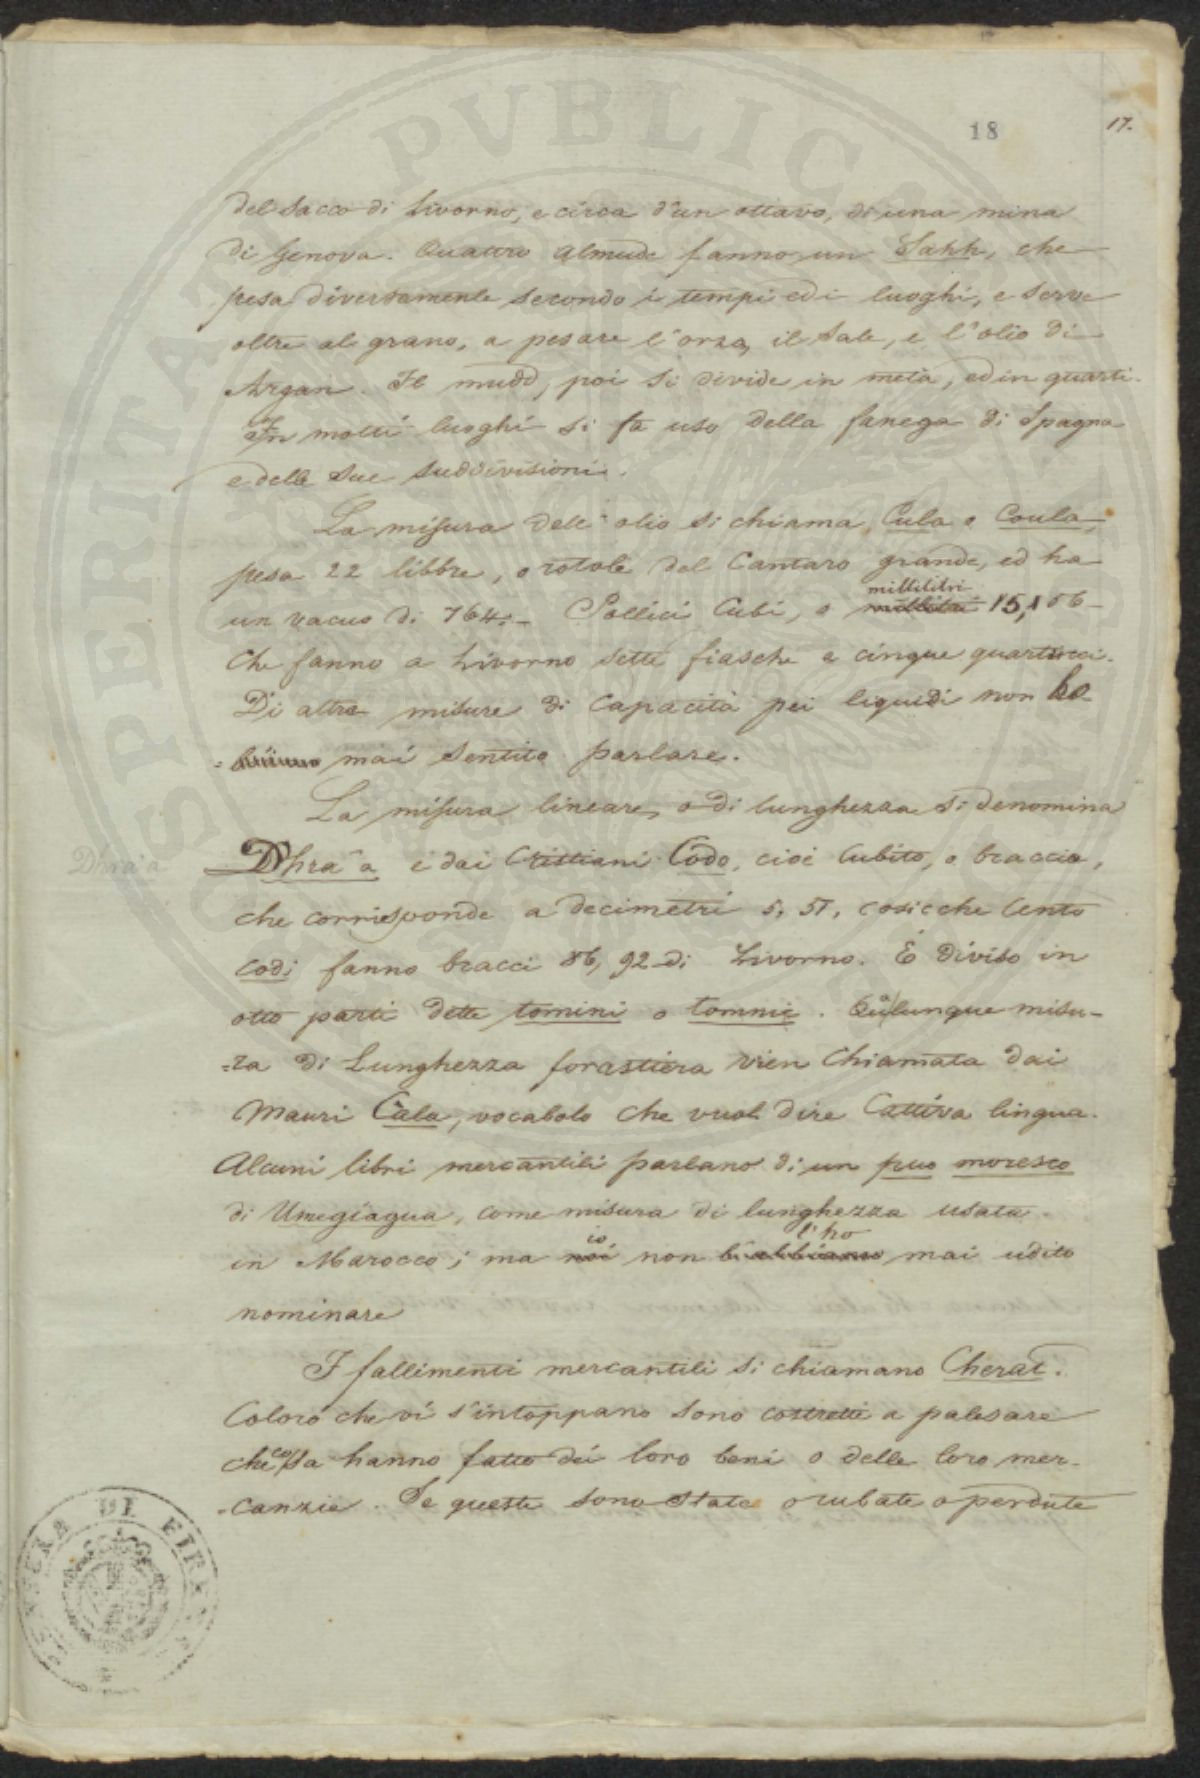 18
17.
del sacco di Livorno, e circa d'un ottavo, di una mina
di Genova. Quattro Almude fanno un Sahh, che
pesa diversamente secondo i tempi ed i luoghi, e serve
oltre al grano, a pesare l'orzo, il sale, e l'olio di
Argan. Il mudd, poi si divide in metà, ed in quarti.
In molti luoghi si fa uso della fanega di Spagna
e delle sue suddivisioni.
La misura dell'olio si chiama, Cula o Coula,
pesa 22 libbre, o rotole del Cantaro grande, ed ha
millilitri
un vacuo di 764:- Pollici Cubi, o 15,156
che fanno a Livorno sette fiasche e cinque quartucci.
Di altre misure di Capacità pei liquidi non ho
mai sentito parlare.
La misura lineare, o di lunghezza si denomina
Dhra'a
Dhra'a e dai Cristiani Codo, cioè Cubito, o braccio,
che corrisponde a decimetri 5, 51, cosicche Cento
codi fanno bracci 86, 92 di Livorno. É diviso in
otto parti dette tomini o tomnie. Qualunque misu-
-ra di Lunghezza forastiera vien Chiamata dai
Mauri Cala, vocabolo che vuol dire Cattiva lingua.
Alcuni libri mercantili parlano di un puo moresco
di Umegiagua, come misura di lunghezza usata
io l'ho
in Marocco; ma noi non l'abbiamo mai udito
nominare
I fallimenti mercantili si chiamano Cherat.
Coloro che vi s'intoppano sono costretti a palesare
che cosa hanno fatto dei loro beni o delle loro mer-
-canzie. Se queste sono state o rubate o perdute
PERITATI PVBLICAE